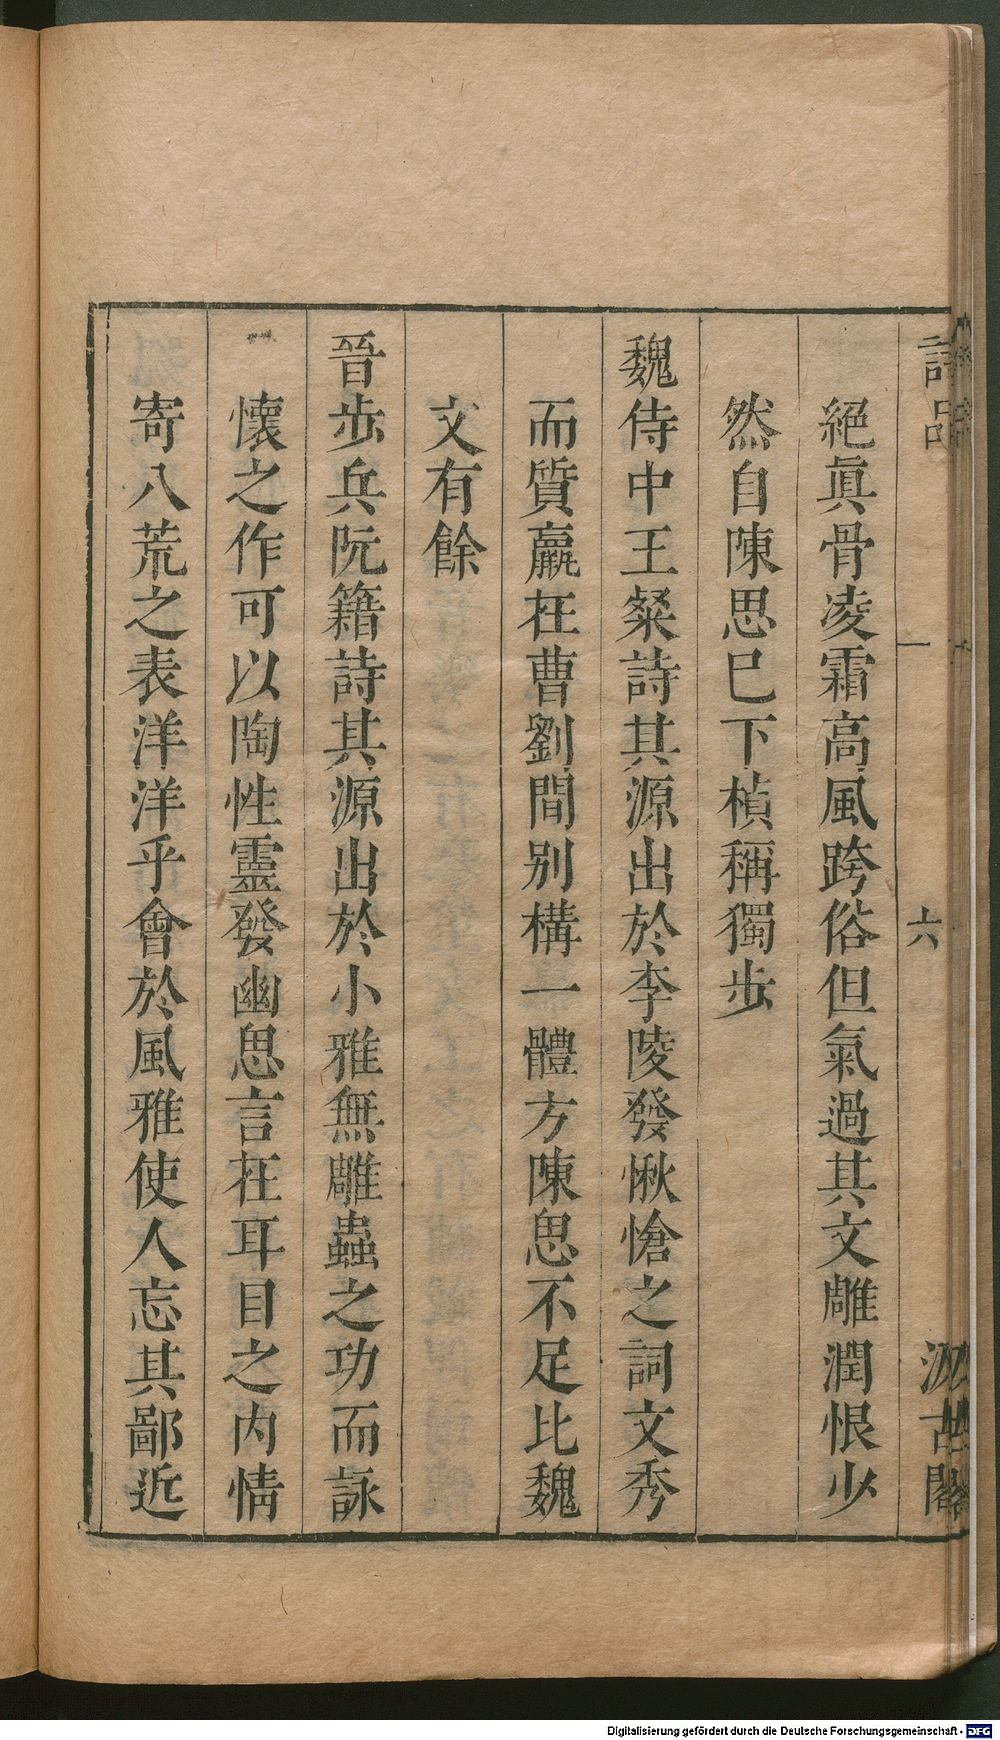 詩品
一
六
汲古閣
絕眞骨凌霜高風跨俗但氣過其文雕潤恨少
然自陳思巳下楨稱獨步
魏侍中王粲詩其源出於李陵發愀愴之詞文秀
而質羸在曹劉間别構一體方陳思不足比魏
文有餘
晉步兵阮籍詩其源出於小雅無雕蟲之功而詠
懷之作可以陶性靈發幽思言在耳目之内情
寄八荒之表洋洋乎會於風雅使人忘其鄙近
Digitalisierung gefördert durch die Deutsche Forschungsgemeinschaft - DFG